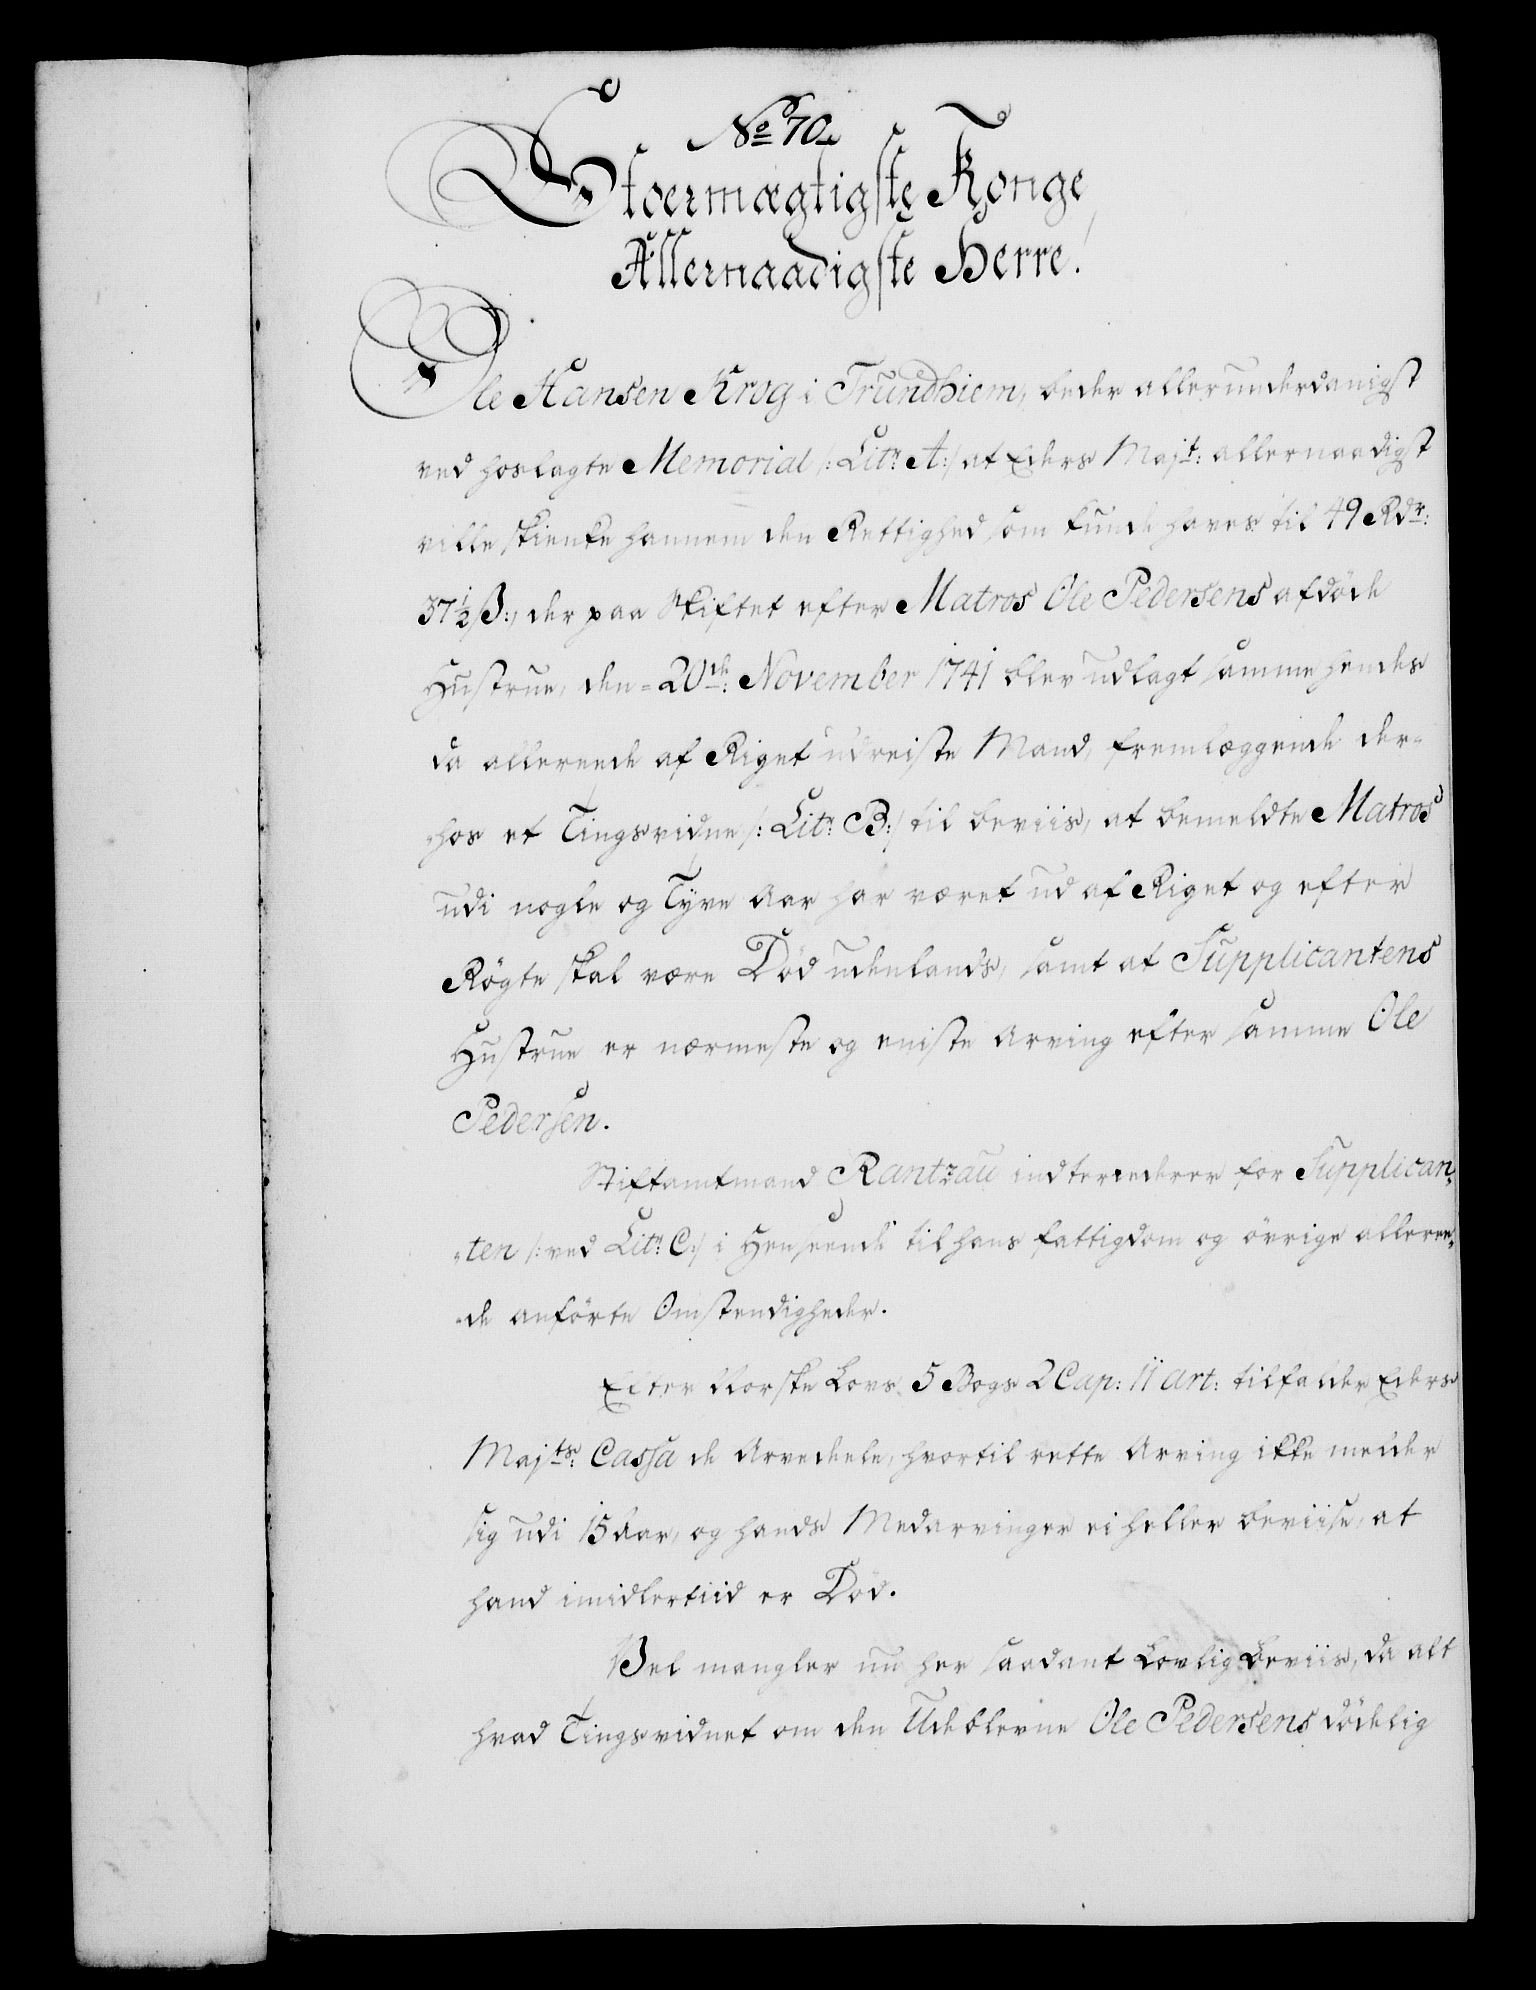 No 70.
Stoermægtigste Konge
Allernaadigste Herre!
Ole Hansen Krog i Trundhiem, beder allerunderdanigst
ved hoslagte Memorial /: Litr: A:/ at Eders Majt: allernaadigst
ville skienke hannem den Rettighed som kunde haves til 49 Rdr:
37½ ß:, der paa Skiftet efter Matros Ole Pedersens afdöde
Hustrue, den 20de: November 1741 blev udlagt samme hendes
da allereede af Riget udreiste Mand, fremlæggende der-
-hos et Tingsvidne /: Litr: B:/ til beviis, at bemeldte Matros
udi nogle og Tyve Aar har været ud af Riget og efter
Rögte skal være Död udenlands, samt at Supplicantens
Hustrue er nærmeste og eniste Arving efter samme Ole
Pedersen.
Stiftamtmand Rantzau indtercederer for Supplican-
-ten /: ved Litr: C:/ i Henseende til hans fattigdom og övrige alleree-
-de anförte Omstendigheder.
Efter Norske Lovs 5 Bogs 2 Cap: 11 Art: tilfalder Eders
Majts: Cassa de Arvedeele, hvortil rette Arving ikke melder
sig udi 15 Aar, og hands Medarvinger ei heller beviise, at
hand imidlertiid er Död.
Vel mangler nu her saadant Lovlig Beviis, da alt
hvad Tingsvidnet om den Udeblevne Ole Pedersens dödelig